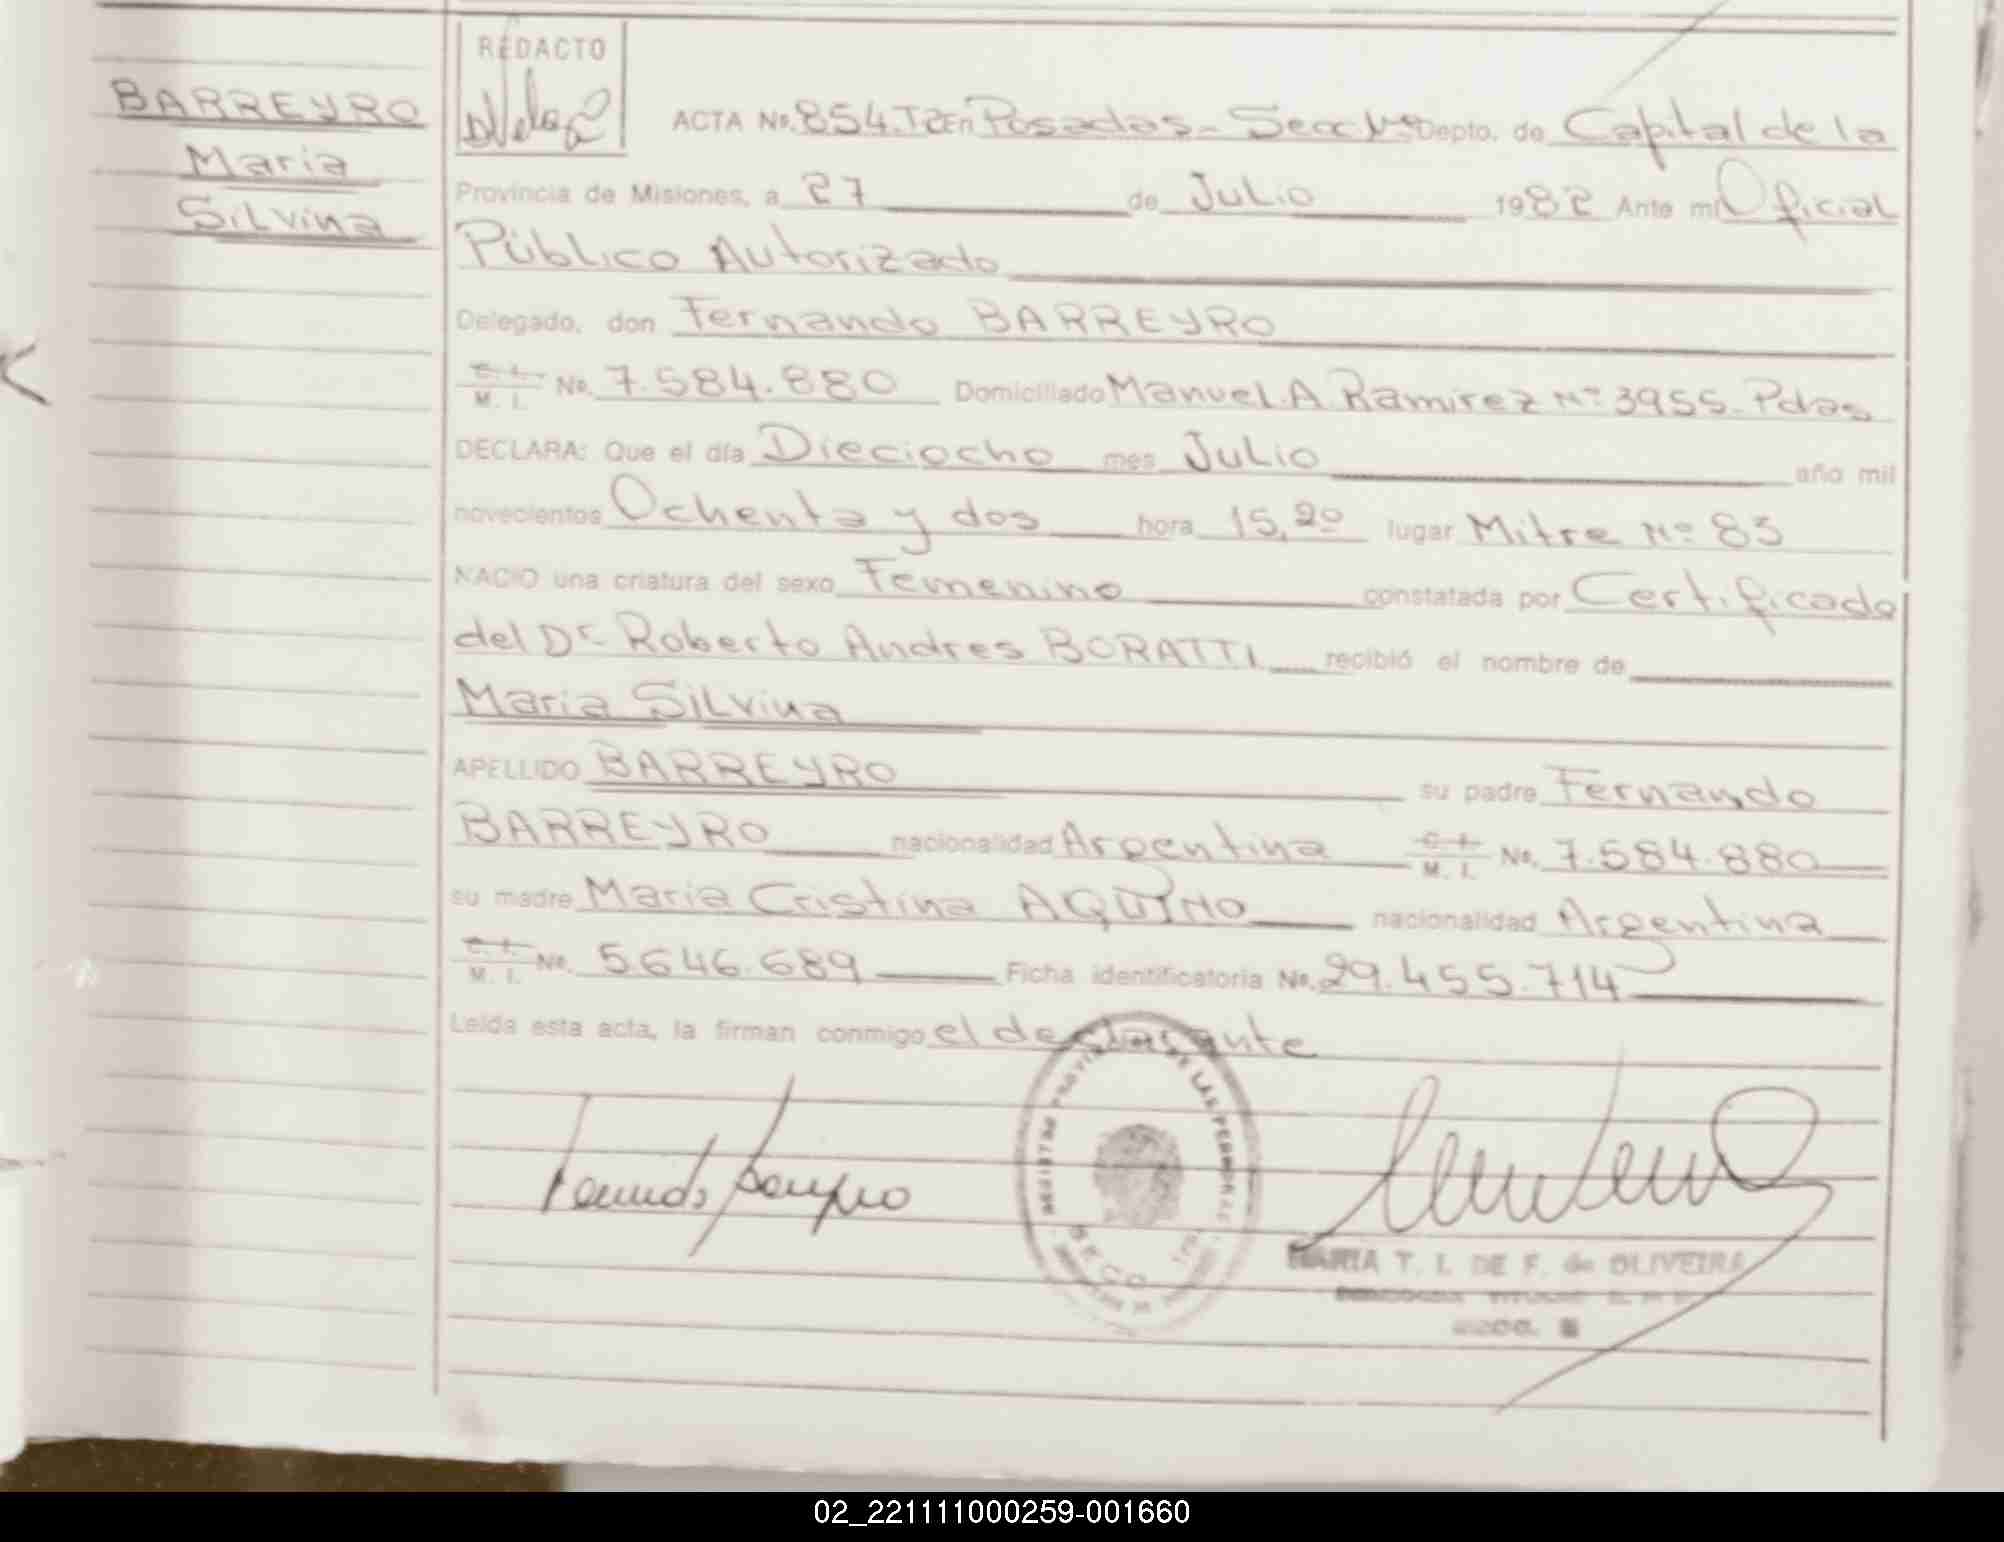 BARREYRO
Maria
Silvina
REDACTO
ACTA No. 854.T2 En Posadas - Secc Depto. de Capital de la
Provincia de Misiones, a 27 de Julio 1982 Ante mi Oficial
Público Autorizado
Delegado, don Fernando BARREYRO
C. I. M. I. No. 7.584.880 Domiciliado Manuel.A Ramirez Nº 3955. Pdas
DECLARA: Que el día Dieciocho mes Julio año mil
novecientos Ochenta y dos hora 15,20 lugar Mitre Nº 83
NACIO una criatura del sexo Femenino constatada por Certificado
del Dr. Roberto Andres BORATTI recibió el nombre de
Maria Silvina
APELLIDO BARREYRO su padre Fernando
BARREYRO nacionalidad Argentina C. I. M. I. No. 7.584.880
su madre Maria Cristina AQUINO nacionalidad Argentina
C. I. M. I. No. 5.646.689 Ficha identificatoria No. 29.455.714
Leída esta acta, la firman conmigo el declarante
Fernando Barreyro
REGISTRO PROVINCIAL DE LAS PERSONAS
MARIA T. I. DE F. de OLIVEIRA
02_221111000259-001660